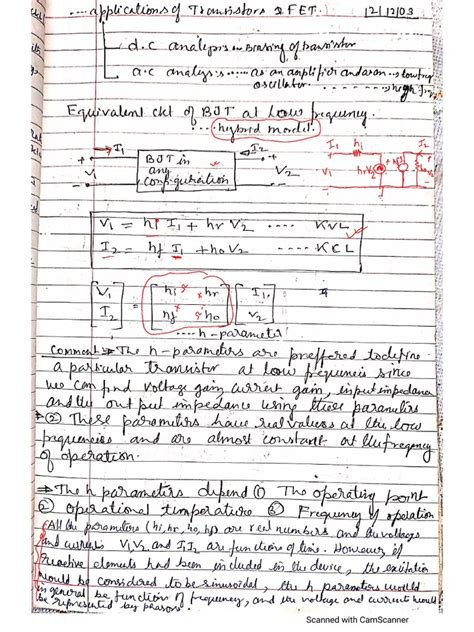 .... applications of Transistors & FET. 12/12/03
d.c analysis → Biasing of transistor
a.c analysis ...... as an amplifier and as an → low freq
oscillator. → high freq
Equivalent ckt of BJT at Low frequency.
.... hybrid model.
I1 BJT in any configuration I2
V1 V2
I1 hi I2
V1 hrV2 V2
V1 = hi I1 + hr V2 ..... KVL
I2 = hf I1 + ho V2 ..... KCL
[V1 I2] = [hi hr hf ho] [I1 V2]
.... h-parameter
Comment ⇒ The h-parameters are preffered to define
a particular transistor at low frequencies since
we can find voltage gain, current gain, input impedance
and the out put impedance using these parameters
⇒ (2) These parameters have real values at the low
frequencies and are almost constant at the freqency
of operation.
⇒ The h parameters depend (1) The operating point
(2) operational temperature (3) Frequency of operation
All the parameters (hi, hr, ho, hf) are real numbers and the voltages
and currents V1, V2 and I1, I2 are functions of time. However, if
reactive elements had been included in the device, the excitation
would be considered to be sinusoidal, the h parameters would
in general be function of frequency, and the voltage and currents would
be represented by phasors.
Scanned with CamScanner